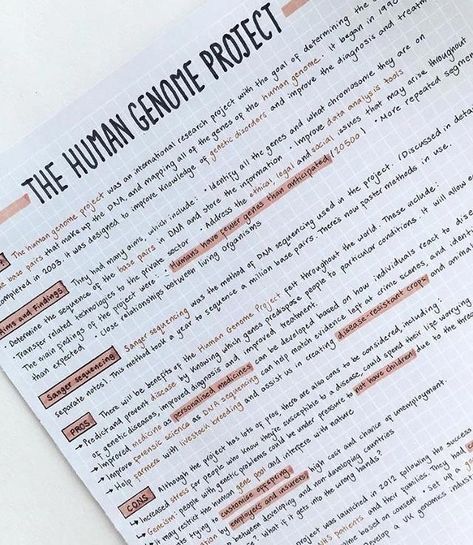 THE HUMAN GENOME PROJECT
The human genome project was an international research project with the goal of determining the
base pairs that make up the DNA, and mapping all of the genes of the human genome. It began in 1990
completed in 2003. It was designed to improve knowledge of genetic disorders and improve the diagnosis and
Aims and Findings They had many aims, which include: · Identify all the genes and what chromosome they are on
Determine the sequence of the base pairs in DNA and store the information · Improve data analysis tools
· Transfer related technologies to the private sector · Address the ethical, legal and social issues that may arise throughout
The main findings of the project were: · Humans have fewer genes than anticipated (20500) · More repeated
than expected · Close relationships between living organisms
Sanger sequencing Sanger sequencing was the method of DNA sequencing used in the project. (Discussed in
separate notes). This method took a year to sequence a million base pairs. There's now faster methods in use.
PROS There will be benefits of the Human Genome Project felt throughout the world. These include:
→ Predict and prevent disease by knowing which genes predispose people to particular conditions. It will allow
of genetic diseases, improved diagnosis and improved treatment.
→ Improved medicine as personalised medicines can be developed based on how individuals react to
→ Improve forensic science as DNA sequencing can help match evidence left at crime scenes, and
→ Help farmers with livestock breeding and assist us in creating disease-resistant crops and
CONS Although the project has lots of pros, there are also cons to be considered, including:
→ Increased stress for people who know they're susceptible to a disease, could spend their life
→ Genism: people with genetic problems could be under pressure to not have children due to the
it may restrict the human gene pool and interfere with nature
trying to customise offspring
by employers and insurers, high cost and chance of unemployment.
between developed and non developing countries
What if it gets into the wrong hands?
project was launched in 2012 following the success
NHS patients and their families. They had
time based on consent · Set up a
Develop a UK genomics